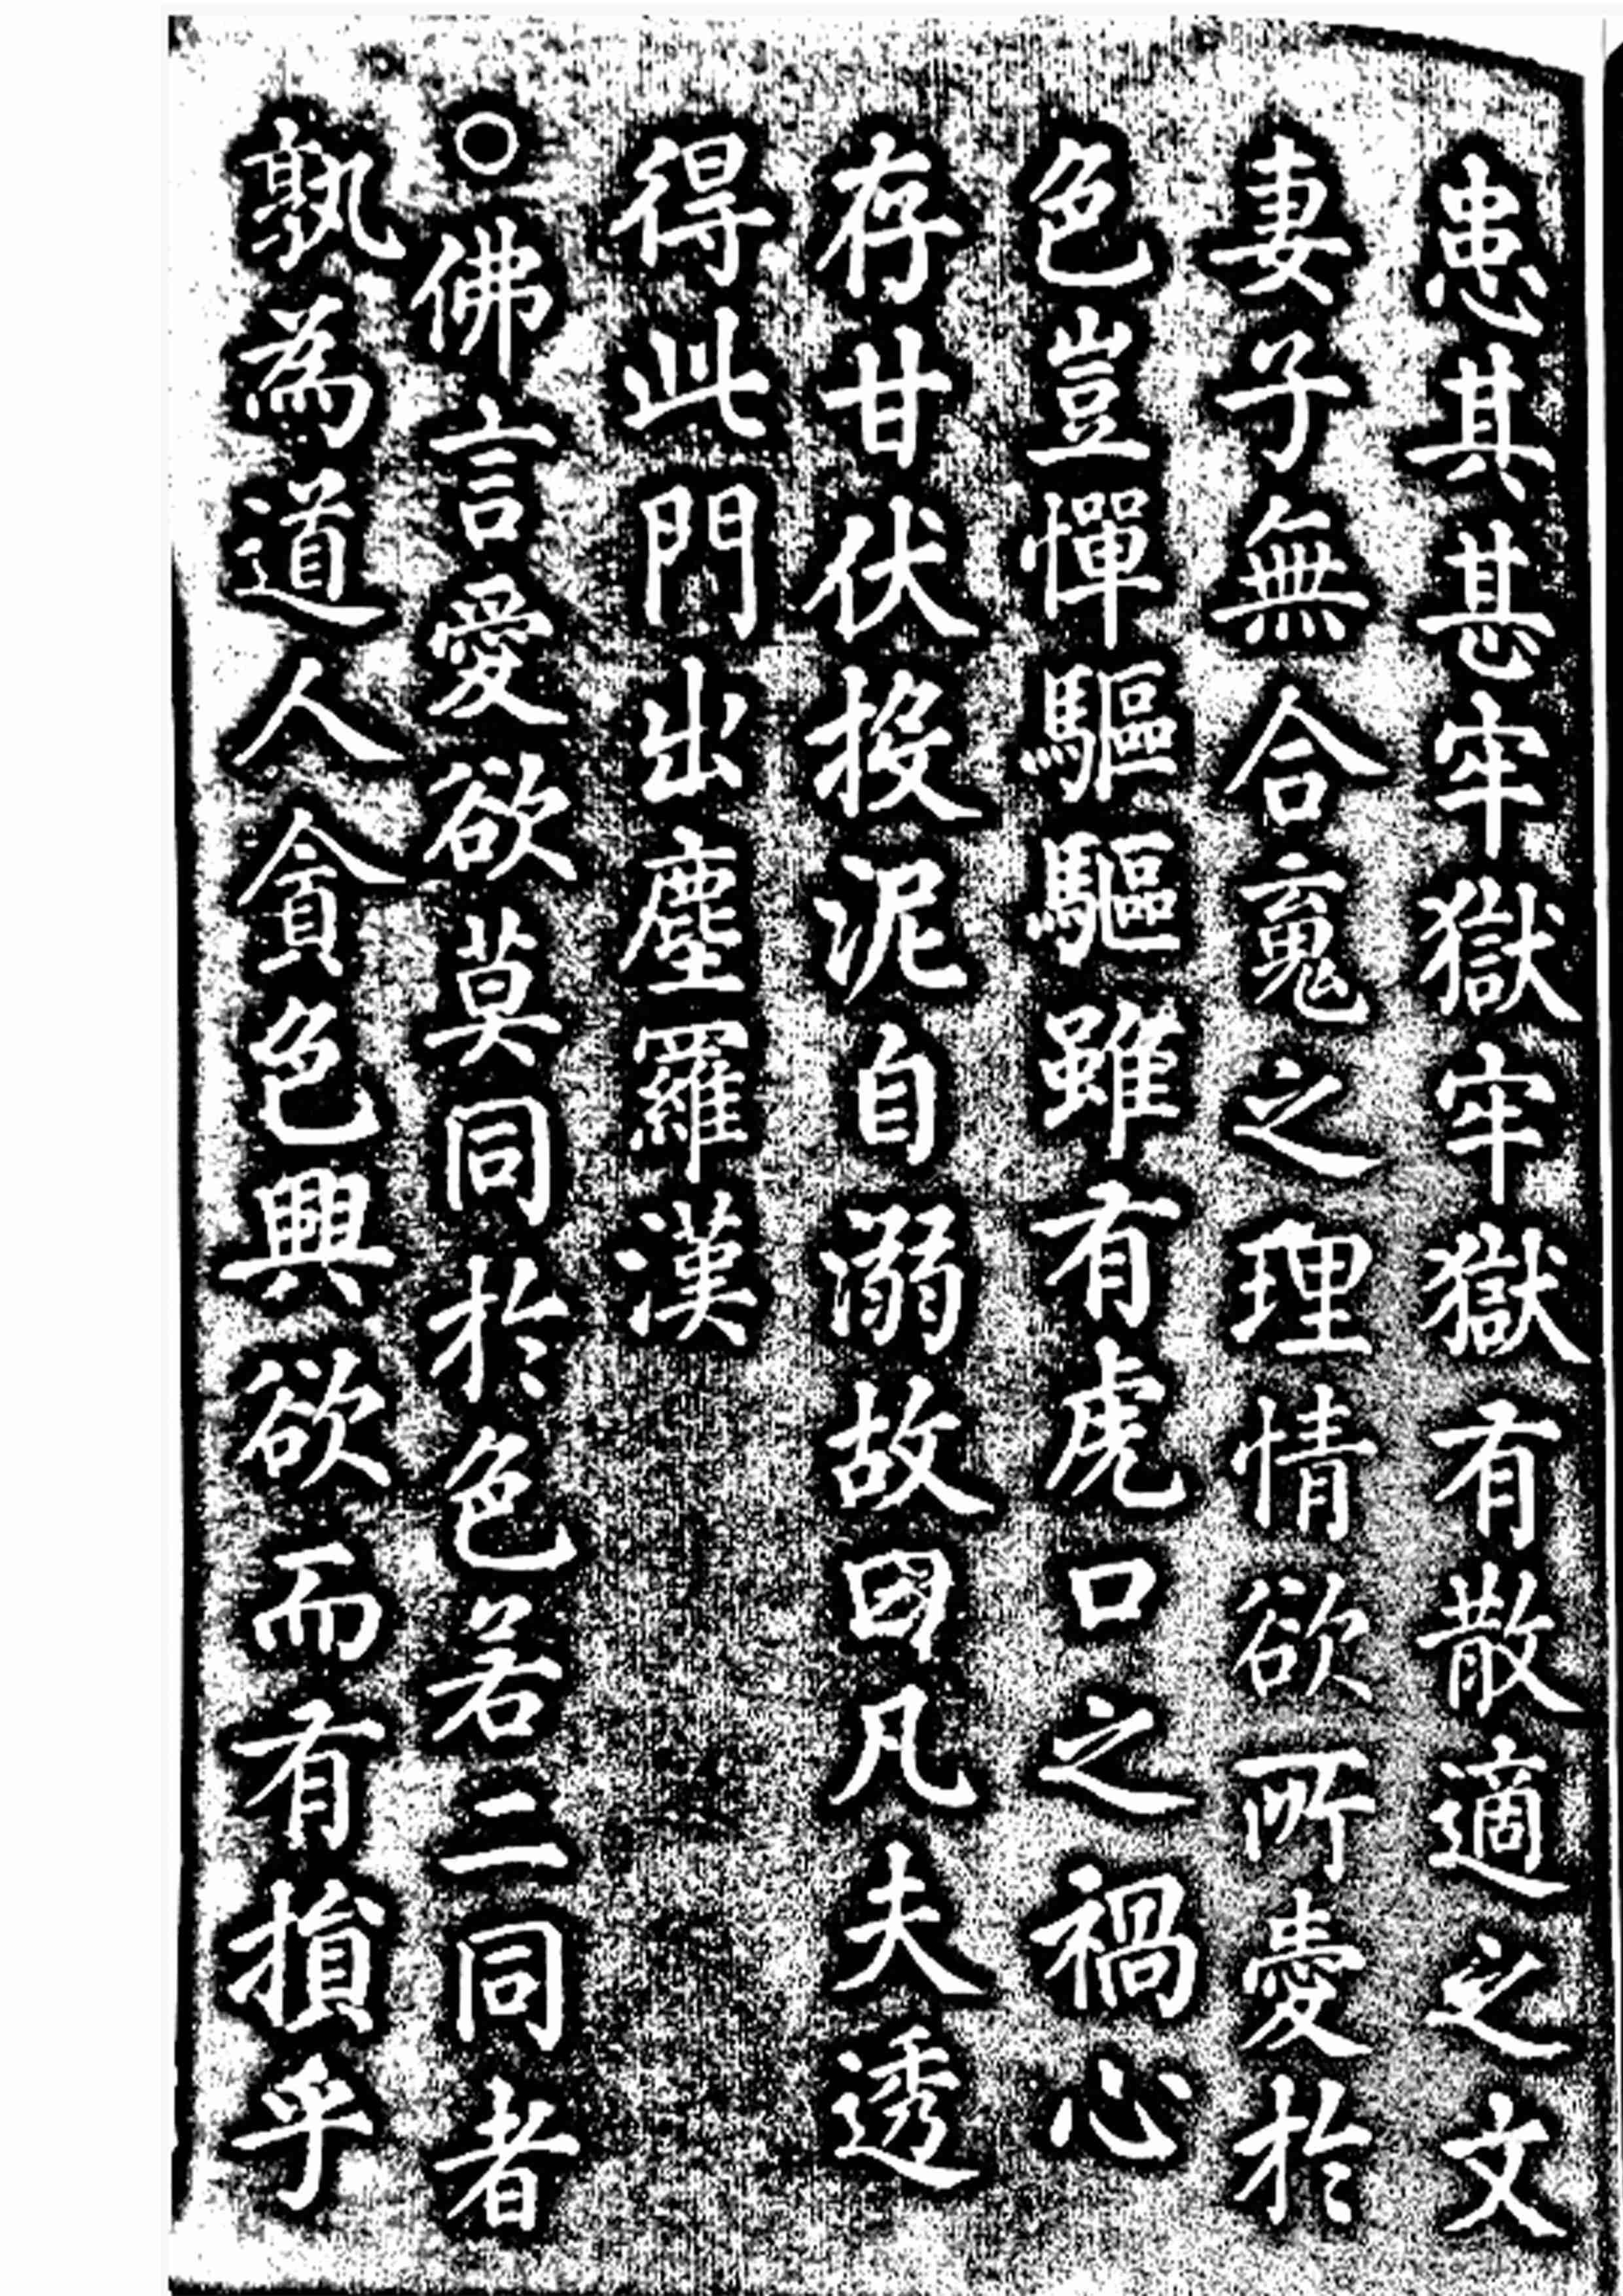 患其甚牢獄牢獄有散適之文
妻子無合䰟之理情欲所愛於
色豈憚驅驅雖有虎口之禍心
存甘伏投泥自溺故曰凡夫透
得此門出塵羅漢
○佛言愛欲莫同於色若二同者
孰為道人貪色興欲而有損乎